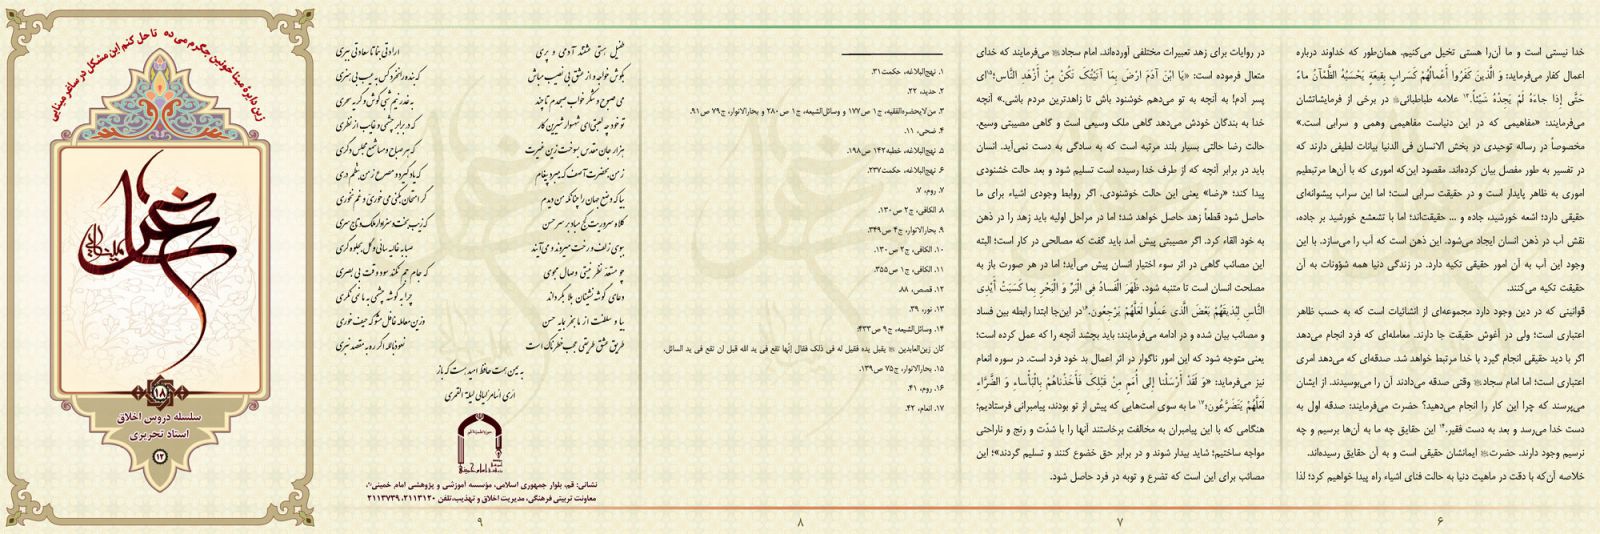 خدا نیستی است و ما آن‌را هستی تخیل می‌کنیم. همان‌طور که خداوند درباره
اعمال کفار می‌فرماید: وَ الَّذینَ کَفَرُوا أَعْمالُهُمْ کَسَرابٍ بِقیعَةٍ یَحْسَبُهُ الظَّمْآنُ ماءً
حَتَّی إِذا جاءَهُ لَمْ یَجِدْهُ شَیْئاً.۱۳ علامه طباطبائی در برخی از فرمایشاتشان
می‌فرمایند: «مفاهیمی که در این دنیاست مفاهیمی وهمی و سرابی است.»
مخصوصاً در رساله توحیدی در بخش الانسان فی الدنیا بیانات لطیفی دارند که
در تفسیر به طور مفصل بیان کرده‌اند. مقصود این‌که اموری که با آن‌ها مرتبطیم
اموری به ظاهر پایدار است و در حقیقت سرابی است؛ اما این سراب پیشوانه‌ای
حقیقی دارد؛ اشعه خورشید، جاده و ... حقیقت‌اند؛ اما با تشعشع خورشید بر جاده،
نقش آب در ذهن انسان ایجاد می‌شود. این ذهن است که آب را می‌سازد. با این
وجود این آب به آن امور حقیقی تکیه دارد. در زندگی دنیا همه شؤونات به آن
حقیقت تکیه می‌کنند.
قوانینی که در دین وجود دارد مجموعه‌ای از انشائیات است که به حسب ظاهر
اعتباری است؛ ولی در آغوش حقیقت جا دارند. معامله‌ای که فرد انجام می‌دهد
اگر با دید حقیقی انجام گیرد با خدا مرتبط خواهد شد. صدقه‌ای که می‌دهد امری
اعتباری است؛ اما امام سجاد وقتی صدقه می‌دادند آن را می‌بوسیدند. از ایشان
می‌پرسند که چرا این کار را انجام می‌دهید؟ حضرت می‌فرمایند: صدقه اول به
دست خدا می‌رسد و بعد به دست فقیر.۱۴ این حقایق چه ما به آن‌ها برسیم و چه
نرسیم وجود دارند. حضرت ایمانشان حقیقی است و به آن حقایق رسیده‌اند.
خلاصه آن‌که با دقت در ماهیت دنیا به حالت فنای اشیاء راه پیدا خواهیم کرد؛ لذا
۶
در روایات برای زهد تعبیرات مختلفی آورده‌اند. امام سجاد می‌فرمایند که خدای
متعال فرموده است: «یَا ابْنَ آدَمَ ارْضَ بِمَا آتَیْتُکَ تَکُنْ مِنْ أَزْهَدِ النَّاسِ؛۱۵ ای
پسر آدم! به آنچه به تو می‌دهم خوشنود باش تا زاهدترین مردم باشی.» آنچه
خدا به بندگان خودش می‌دهد گاهی ملک وسیعی است و گاهی مصیبتی وسیع.
حالت رضا حالتی بسیار بلند مرتبه است که به سادگی به دست نمی‌آید. انسان
باید در برابر آنچه که از طرف خدا رسیده است تسلیم شود و بعد حالت خشنودی
پیدا کند؛ «رضا» یعنی این حالت خوشنودی. اگر روابط وجودی اشیاء برای ما
حاصل شود قطعاً زهد حاصل خواهد شد؛ اما در مراحل اولیه باید زهد را در ذهن
به خود القاء کرد. اگر مصیبتی پیش آمد باید گفت که مصالحی در کار است؛ البته
این مصائب گاهی در اثر سوء اختیار انسان پیش می‌آید؛ اما در هر صورت باز به
مصلحت انسان است تا متنبه شود. ظَهَرَ الْفَسادُ فِی الْبَرِّ وَ الْبَحْرِ بِما کَسَبَتْ أَیْدِی
النَّاسِ لِیُذیقَهُمْ بَعْضَ الَّذی عَمِلُوا لَعَلَّهُمْ یَرْجِعُونَ.۱۶ در این‌جا ابتدا رابطه بین فساد
و مصائب بیان شده و در ادامه می‌فرمایند: باید بچشد آنچه را که عمل کرده است؛
یعنی متوجه شود که این امور ناگوار در اثر اعمال بد خود فرد است. در سوره انعام
نیز می‌فرماید: «وَ لَقَدْ أَرْسَلْنا إِلی أُمَمٍ مِنْ قَبْلِکَ فَأَخَذْناهُمْ بِالْبَأْساءِ وَ الضَّرَّاءِ
لَعَلَّهُمْ یَتَضَرَّعُونَ؛۱۷ ما به سوی امت‌هایی که پیش از تو بودند، پیامبرانی فرستادیم؛
هنگامی که با این پیامبران به مخالفت برخاستند آنها را با شدّت و رنج و ناراحتی
مواجه ساختیم؛ شاید بیدار شوند و در برابر حق خضوع کنند و تسلیم گردند»؛ این
مصائب برای این است که تضرع و توبه در فرد حاصل شود.
۷
۱. نهج‌البلاغه، حکمت۳۱.
۲. حدید، ۲۲.
۳. من‌لایحضره‌الفقیه، ج۱ ص۱۷۷ و وسائل‌الشیعه، ج۱ ص۲۸۰ و بحارالانوار، ج۷۹ ص۹۱.
۴. ضحی، ۱۱.
۵. نهج‌البلاغه، خطبه۱۴۲ ص۱۹۸.
۶. نهج‌البلاغه، حکمت۲۳۷.
۷. روم، ۷.
۸. الکافی، ج۲ ص۱۳۰.
۹. بحارالانوار، ج۴ ص۳۴۹.
۱۰. الکافی، ج۲ ص۱۳۰.
۱۱. الکافی، ج۱ ص۳۵۵.
۱۲. قصص، ۸۸.
۱۳. نور، ۳۹.
۱۴. وسائل‌الشیعه، ج۹ ص۴۳۳:
کان زین‌العابدین یقبل یده فقیل له فی ذلک فقال إنّها تقع فی ید الله قبل ان تقع فی ید السائل.
۱۵. بحارالانوار، ج۷۵ ص۱۳۹.
۱۶. روم، ۴۱.
۱۷. انعام، ۴۲.
۸
طفیل هستی عشقند آدمی و پری ارادتی بنما تا سعادتی ببری
بکوش خواجه و از عشق بی نصیب مباش که بنده را نخرد کس به عیب بی هنری
می صبوح و شکر خواب صبحدم تا چند به عذر نیم شبی کوش و گریه سحری
تو خود چه لعبتی ای شهسوار شیرین کار که در برابر چشمی و غایب از نظری
هزار جان مقدس بسوخت زین غیرت که هر صباح و مسا شمع مجلس دگری
ز من به حضرت آصف که می برد پیغام که یاد گیر دو مصرع ز من به نظم دری
بیا که وضع جهان را چنانکه من دیدم گر امتحان بکنی می خوری و غم نخوری
کلاه سروریت کج مباد بر سر حسن که زیب بخت و سزاوار ملک و تاج سری
ببوی زلف و رخت می روند و می آیند صبا به غالیه سائی و گل به جلوه گری
چو مستعد نظر نیستی وصال مجوی که جام جم نکند سود وقت بی بصری
دعای گوشه نشینان بلا بگرداند چرا به گوشه چشمی به ما نمی نگری
بیا و سلطنت از ما بخر به مایه حسن وزین معامله غافل مشو که حیف خوری
طریق عشق طریقی عجب خطرناک است نعوذ بالله اگر ره به مقصد نبری
به یمن همت حافظ امید هست که باز
اری اسامر لیلای لیلة القمری
نشانی: قم، بلوار جمهوری اسلامی، مؤسسه آموزشی و پژوهشی امام خمینی
معاونت تربیتی فرهنگی، مدیریت اخلاق و تهذیب،تلفن ۲۱۱۳۱۲۰، ۲۱۱۳۷۳۹
۹
زین دایرهٔ مینا خونین جگرم می ده تا حل کنم این مشکل در ساغر مینایی
۱۸
سلسله دروس اخلاق
استاد تحریری
۱۲